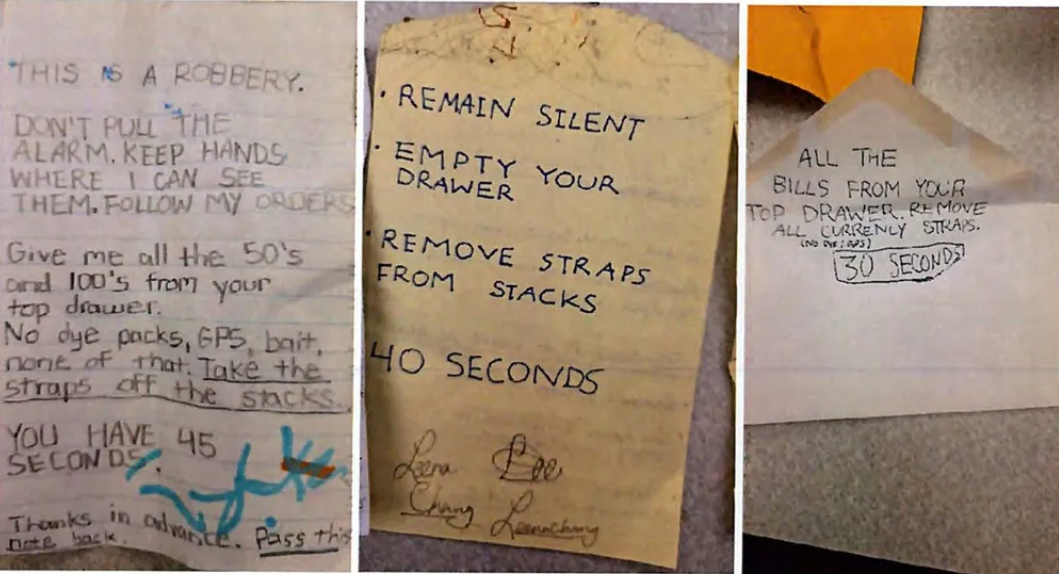 THIS IS A ROBBERY.
DON'T PULL THE
ALARM. KEEP HANDS
WHERE I CAN SEE
THEM. FOLLOW MY ORDERS
Give me all the 50's
and 100's from your
top drawer.
No dye packs, GPS, bait,
none of that. Take the
straps off the stacks.
YOU HAVE 45
SECONDS.
Thanks in advance. Pass this
note back.
• REMAIN SILENT
• EMPTY YOUR
DRAWER
• REMOVE STRAPS
FROM STACKS
40 SECONDS
Leena Lee
Chang Leenachang
ALL THE
BILLS FROM YOUR
TOP DRAWER. REMOVE
ALL CURRENLY STRAPS.
(NO DYE / GPS)
30 SECONDS